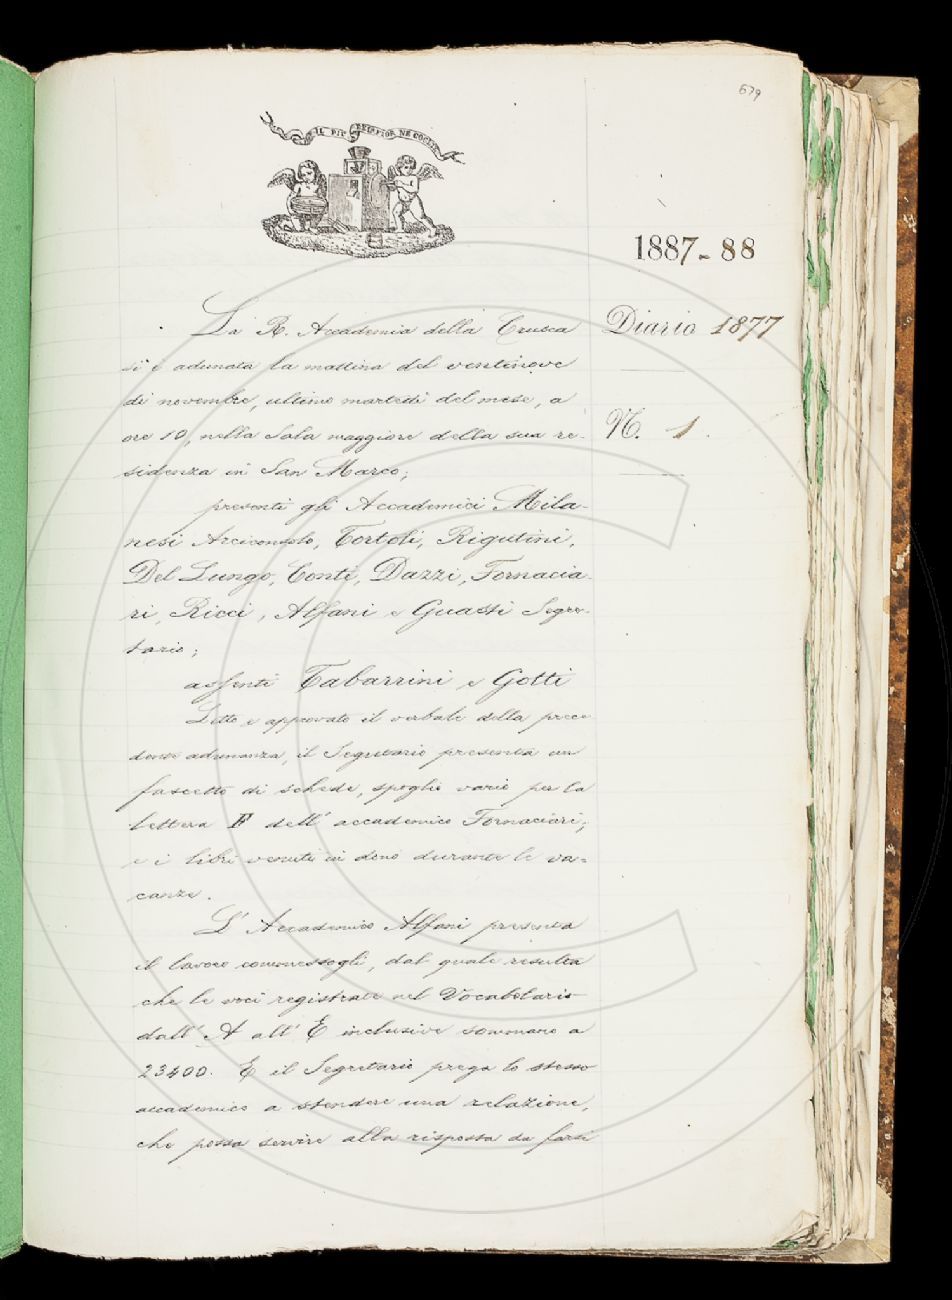 679
IL PIÙ BEL FIOR NE COGLIE
1887-88
Diario 1877
N. 1.
La R. Accademia della Crusca
si è adunata la mattina del ventinove
di novembre, ultimo martedì del mese, a
ore 10, nella Sala maggiore della sua re-
sidenza in San Marco;
presenti gli Accademici Mila-
nesi Arciconsolo, Tortoli, Rigutini,
Del Lungo, Conti, Dazzi, Fornacia-
ri, Ricci, Alfani e Guasti Segre-
tario;
assenti Tabarrini e Gotti
Letto e approvato il verbale della prece
dente adunanza, il Segretario presenta un
fascetto di schede, spoglio vario per la
lettera F dell' accademico Fornaciari;
e i libri venuti in dono durante le va=
canze.
L' Accademico Alfani presenta
il lavoro commessogli, dal quale resulta
che le voci registrate nel Vocabolario
dall' A all' E inclusive sommano a
23400. E il Segretario prega lo stesso
accademico a stendere una relazione,
che possa servire alla risposta da farsi